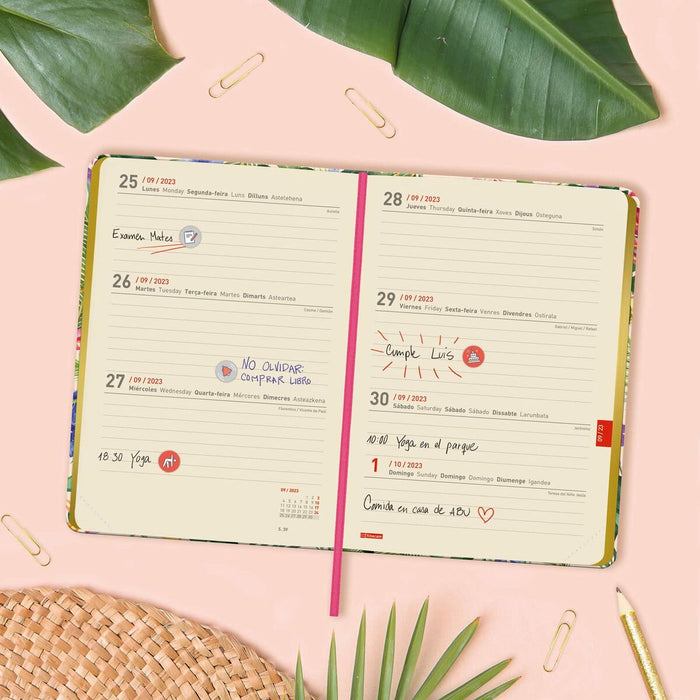 25 / 09 / 2023
Lunes Monday Segunda-feira Luns Dilluns Astelehena
Aurelia
Examen Mates
26 / 09 / 2023
Martes Tuesday Terça-feira Martes Dimarts Asteartea
Cosme / Damián
NO OLVIDAR:
COMPRAR LIBRO
27 / 09 / 2023
Miércoles Wednesday Quarta-feira Mércores Dimecres Asteazkena
Florentino / Vicente de Paúl
18:30 Yoga
09 / 2023
1 2 3
4 5 6 7 8 9 10
11 12 13 14 15 16 17
18 19 20 21 22 23 24
25 26 27 28 29 30
S. 39
28 / 09 / 2023
Jueves Thursday Quinta-feira Xoves Dijous Osteguna
Simón
29 / 09 / 2023
Viernes Friday Sexta-feira Venres Divendres Ostirala
Gabriel / Miguel / Rafael
Cumple Luis
30 / 09 / 2023
Sábado Saturday Sábado Sábado Dissabte Larunbata
Jerónimo
09 / 23
10:00 Yoga en el parque
1 / 10 / 2023
Domingo Sunday Domingo Domingo Diumenge Igandea
Teresa del Niño Jesús
Comida en casa de ABU